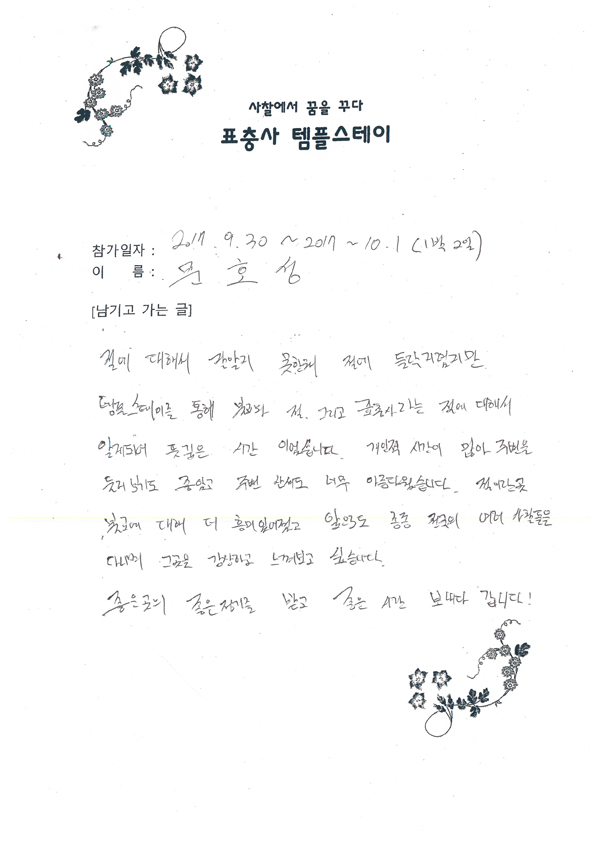 사찰에서 꿈을 꾸다
표충사 템플스테이
참가일자 : 2017. 9. 30 ~ 2017 ~ 10. 1 (1박 2일)
이 름 : 문호성
[남기고 가는 글]
절에 대해서 잘알지 못한채 절에 들락거렸지만
템플스테이를 통해 불교와 절. 그리고 표충사라는 절에 대해서
알게되어 뜻깊은 시간 이었습니다. 개인적 시간이 많아 주변을
둘러보기도 좋았고 주변 산세도 너무 아름다웠습니다. 절이라는곳
불교에 대해 더 흥미있어졌고 앞으로도 종종 전국의 여러 사찰들을
다니며 그곳을 감상하고 느껴보고 싶습니다.
좋은곳의 좋은정기를 받고 좋은 시간 보내다 갑니다!